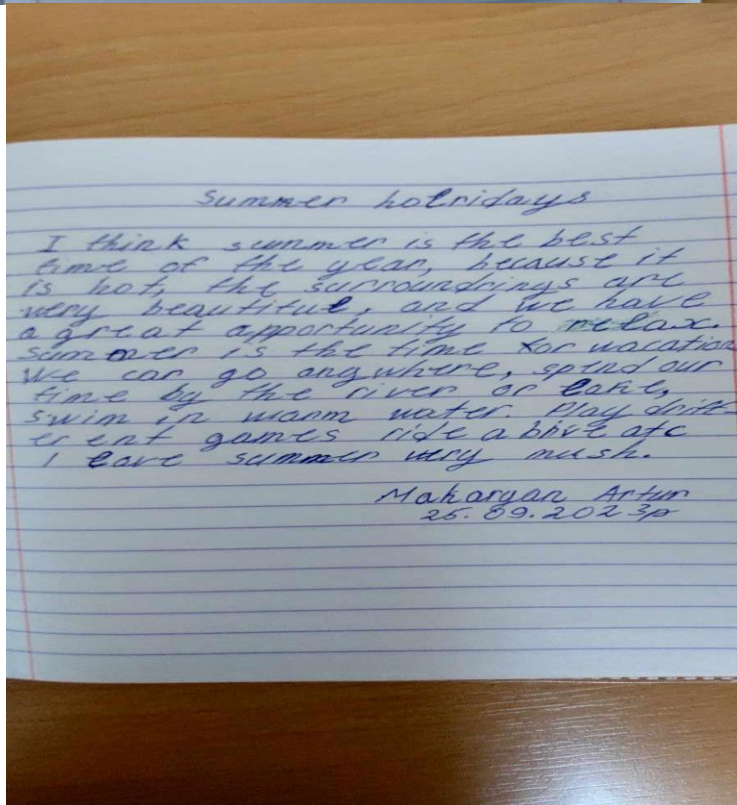 Summer holridays
I think summer is the best
time of the year, because it
is hot, the surroundrings are
very beautiful, and we have
a great opportunity to relax.
summer is the time for vacation
We can go anywhere, spend our
time by the river or lake,
swim in warm water. Play driff-
erent games ride a bike atc
I love summer very mush.
Makaryan Artur
25.09.2023р